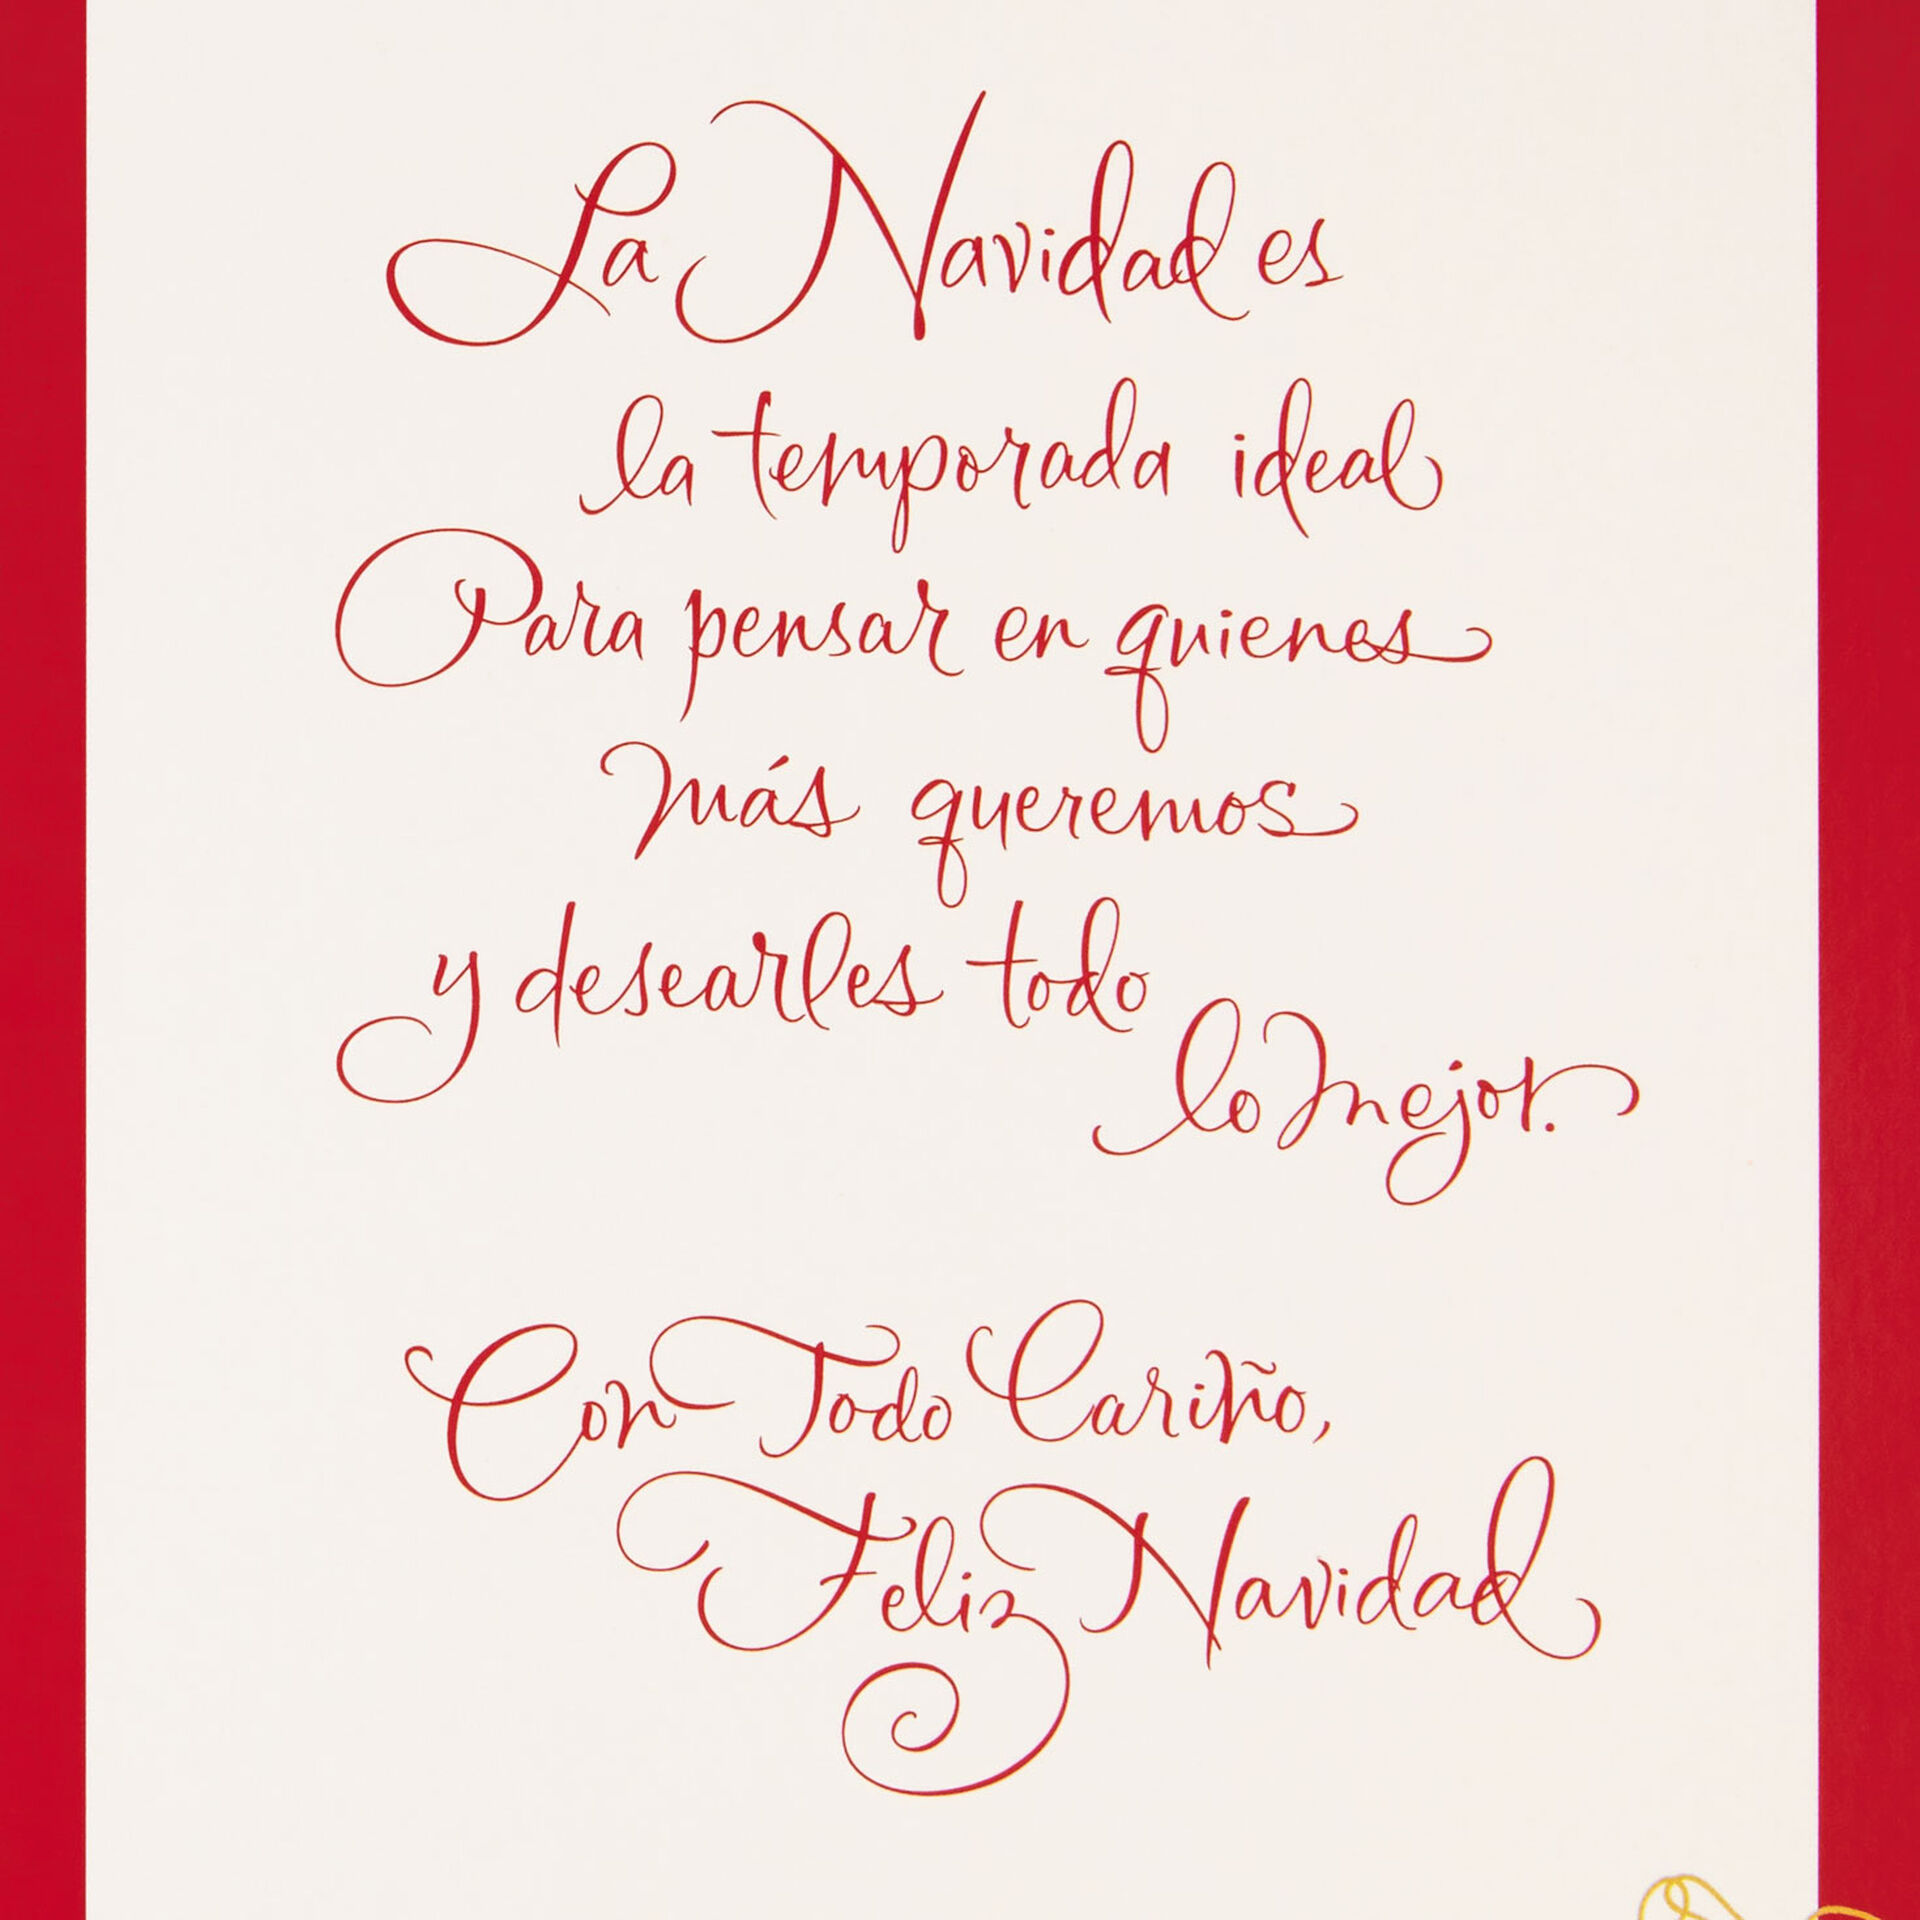 La Navidad es
la temporada ideal
Para pensar en quienes
más queremos
y desearles todo
lo mejor.
Con Todo Cariño,
Feliz Navidad